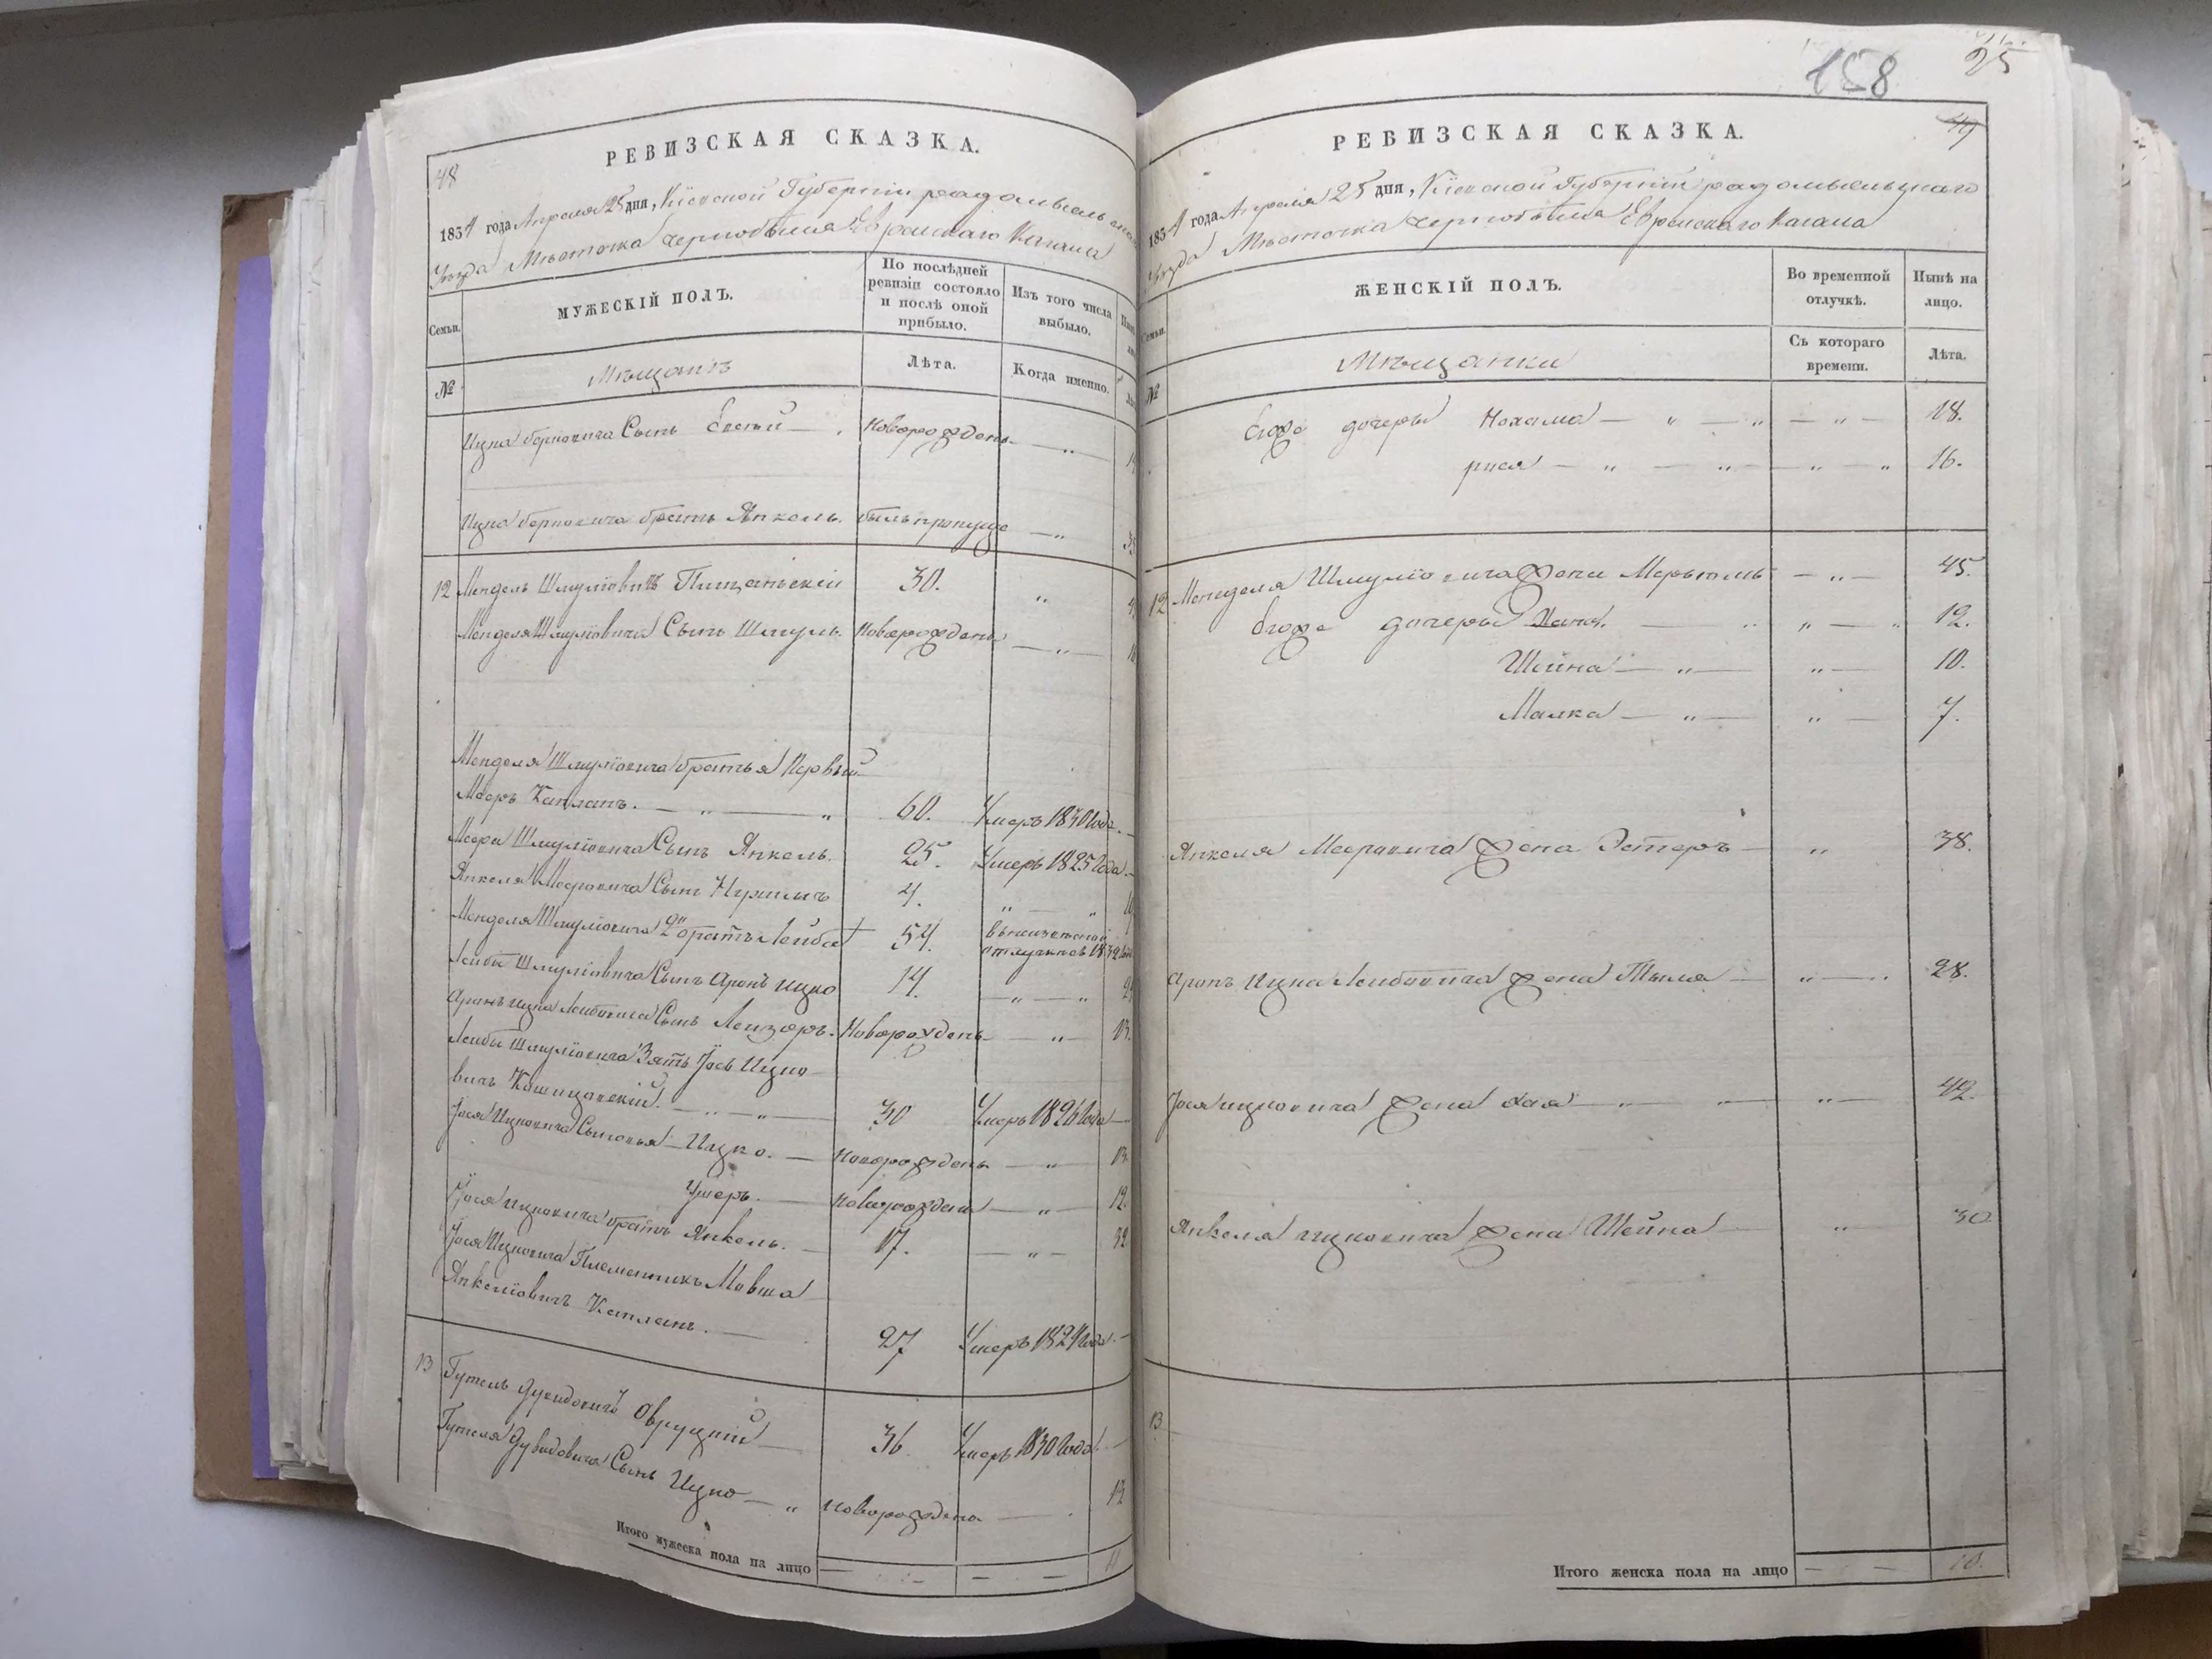 48
РЕВИЗСКАЯ СКАЗКА.
1834 года Апреля 25 дня, Кіевской Губерніи радомысльска
Уезда Мѣсточка Чернобыля Еврейскаго Кагала
Семьи.
МУЖЕСКІЙ ПОЛЪ.
По послѣдней ревизіи состояло и послѣ оной прибыло.
Изъ того числа выбыло.
№
Мѣщанъ
Лѣта.
Когда именно.
Ицка берковича Сынъ Евсей — новорожденъ — „
Ицка берковича братъ Янкель. былъ пропуще — „
12 Мендель Шмуліовичъ 30. „
Менделя Шмуліовича Сынъ Шмуль. новорожденъ — „ —
Менделя Шмуліовича братья Первый
Мееръ Капланъ. — „ — „ 60. Умеръ 1830 года. —
Меера Шмуліовича Сынъ Янкель. 25. Умеръ 1825 года —
Янкеля Мееровича Сынъ 4. „ — „
Менделя Шмуліовича 2й братъ Лейба 54. в неизвестной отлучке с 1832 года
Лейбы Шмуліовича Сынъ Аронъ Ицко 14. — „ — „
Аронъ Ицка Лейбовича Сынъ Лейзоръ. новорожденъ — „ — 13.
Лейбы Шмуліовича Зять Іось Ицко
вичъ — „ — „ — 30 Умеръ 1826 года —
Іося Ицковича Сыновья — Ицко. — новорожденъ — „ — 13
Ушеръ. — новорожденъ — „ — 12.
Іося Ицковича братъ Янкель. — 17. — „ — 32
Іося Ицковича Племенникъ Мовша
Янкеліовичъ Капланъ. — 27 Умеръ 1824 года. —
13 Гутель Дувидовичъ Овруцкій — 36. Умеръ 1830 года. —
Гутеля Дувидовича Сынъ Ицко — „ новорожденъ — 12
Итого мужеска пола на лицо — — — — 11
158
25
49
РЕВИЗСКАЯ СКАЗКА.
1834 года Апреля 25 дня, Кіевской Губерніи радомысльскаго
Уезда Мѣсточка Чернобыля Еврейскаго Кагала
Семьи.
ЖЕНСКІЙ ПОЛЪ.
Во временной отлучкѣ.
Нынѣ на лицо.
№
Мѣщанки
Съ котораго времени.
Лѣта.
Егоже дочеры Нехама — „ — „ — „ — 18.
рися — „ — „ — „ — „ 16.
12 Менделя Шмуліовича жена — „ — 45.
Егоже дочеры Хана. — „ „ — „ 12.
Шейна — „ — „ — 10.
Малка — „ — „ — 7.
Янкеля Мееровича жена Эстеръ — „ 38.
Аронъ Ицка Лейбовича жена — „ — „ 28.
Іося Ицковича жена Хая — „ — „ — 42.
Янкеля Ицковича жена Шейна — „ — 30
13
Итого женска пола на лицо — — 10.